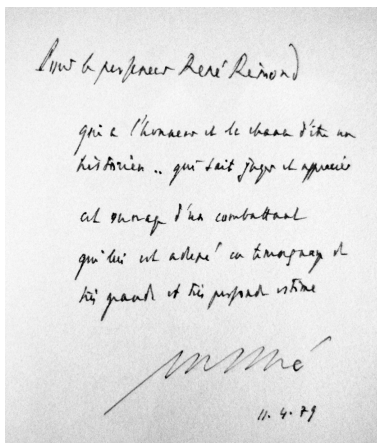 Pour le professeur René Rémond
qui a l'honneur et la chance d'être un
historien .. qui sait juger et apprécier
cet ouvrage d'un combattant
qui lui est adressé en témoignage de
très grande et très profonde estime
11. 4. 79